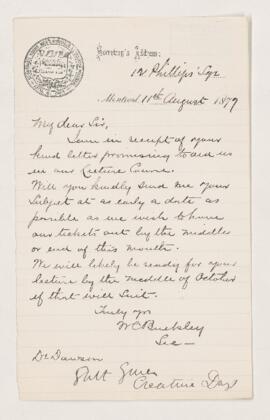 Secretary's Address:
12 Phillips' Sqr
Montreal, 11th August 1879
My dear Sir,
I am in receipt of your
kind letter promising to aid us
in our Lecture Course.
Will you kindly send me your
subject at as early a date as
possible as we wish to have
our tickets out by the middle
or end of this month.
We will likely be ready for your
lecture by the middle of October
if that will suit.
Truly yrs
W C Buckley
Sec
Dr Dawson
Creative Days